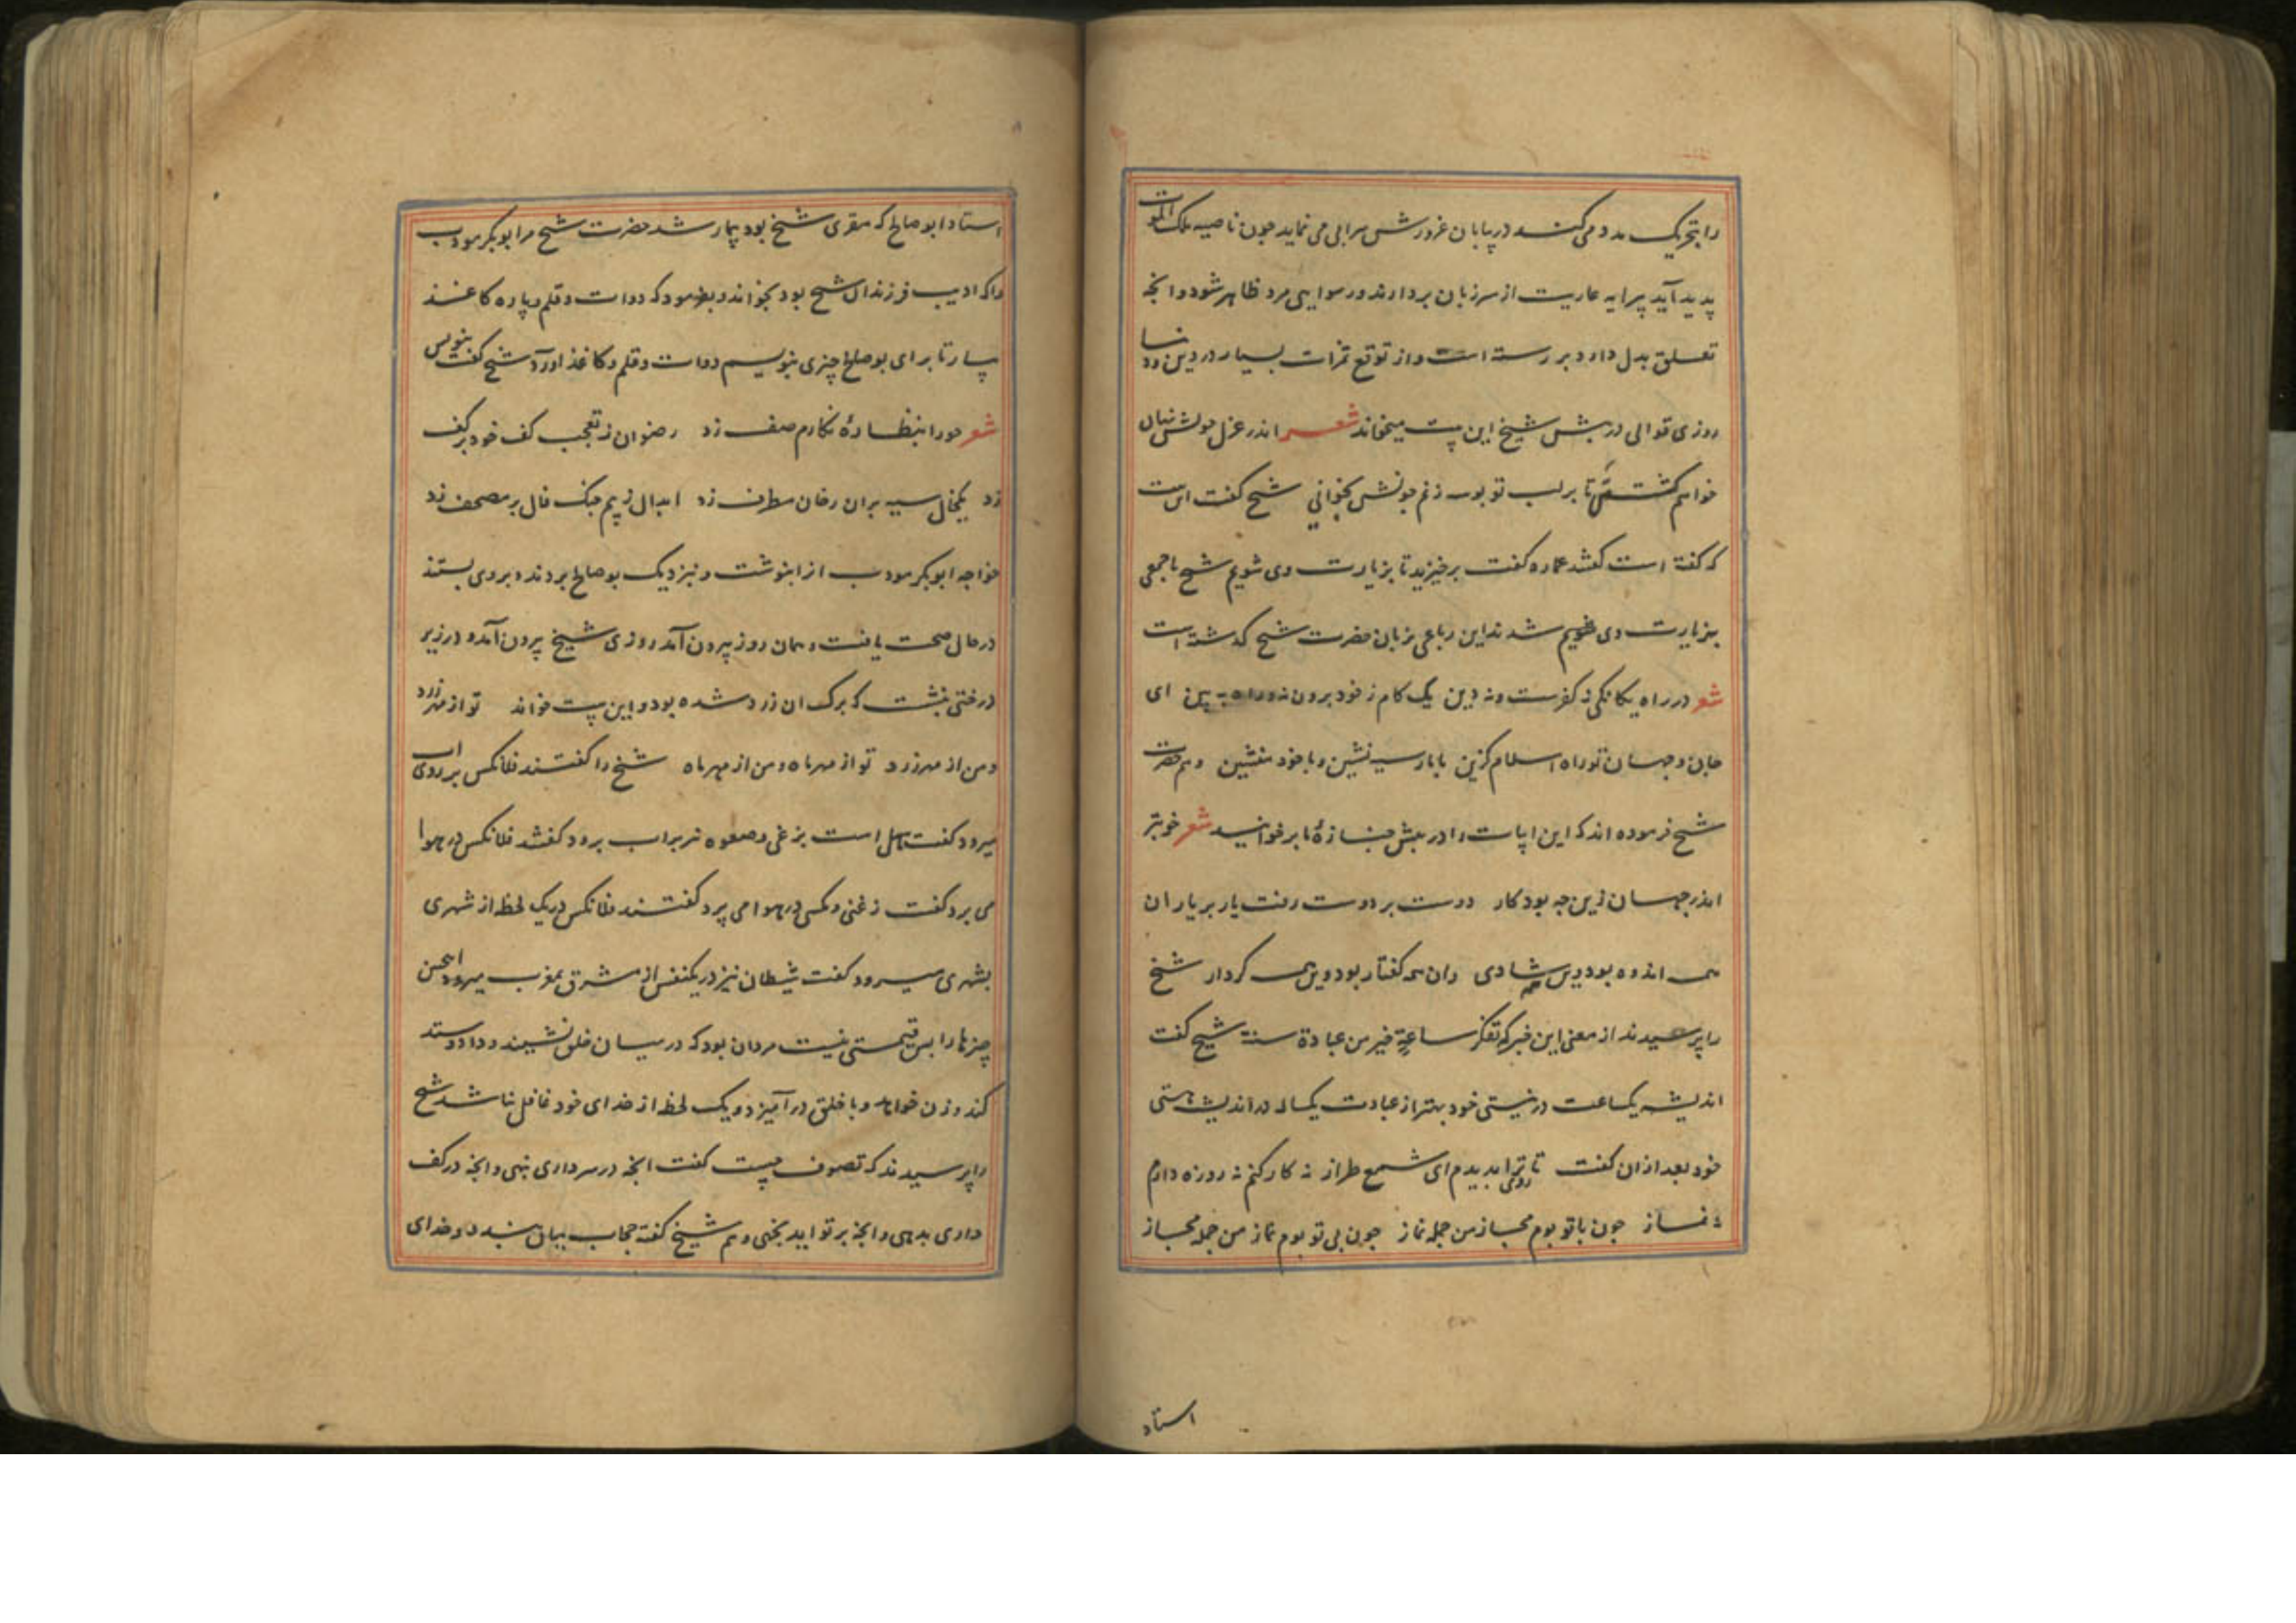 را بتحریک مدد می کنند در بیابان غرورش سرابی می نماید جون ناصیه ملک الموت
پدید آید پیرایه عاریت از سر زبان بردارند و رسوایی مرد ظاهر شود و انجه
تعلق بدل دارد بر رسته است و از توقع ثمرات بسیار در دین و دنیا
روزی قوالی در پیش شیخ این بیت میخواند شعر اندر غزل خویش نهان
خواهم گشتن تا بر لب تو بوسه زنم جونش بخوانی شیخ گفت این بیت
که گفته است گفتند عماره گفت برخیزید تا بزیارت وی شویم شیخ با جمعی
بزیارت وی شدند این رباعی بزبان حضرت شیخ گذشته است
شعر در راه یگانگی نه کفرست و نه دین یک گام ز خود برون نه و راه ببین ای
جان و جهان تو راه اسلام گزین با مار سیه نشین و با خود منشین و هم حضرت
شیخ فرموده اند که این ابیات را در پیش جنازهٔ ما برخوانید شعر خوبتر
اندر جهان ازین جه بود کار دوست بر دوست رفت یار بر یاران
همه اندوه بود وین همه شادی وان همه گفتار بود وین همه کردار شیخ
را پرسیدند از معنی این خبر که تفکر ساعة خیر من عبادة سنة شیخ گفت
اندیشه یکساعت در نیستی خود بهتر از عبادت یکساله در اندیشه هستی
خود بعد ازان گفت تا روی ترا بدیدم ای شمع طراز نه کار کنم نه روزه دارم
نه نماز جون با تو بوم مجاز من جمله نماز جون بی تو بوم نماز من جمله مجاز
استاد
استاد ابو صالح که مقری شیخ بود بیمار شد حضرت شیخ مر ابوبکر مودب
را که ادیب فرزندان شیخ بود بخواند و بفرمود که دوات و قلم و پاره کاغذ
بیار تا برای بو صالح چیزی بنویسیم دوات و قلم و کاغذ آورد شیخ گفت بنویس
شعر حورا بنظارهٔ نگارم صف زد رضوان ز تعجب کف خود بر کف
زد یکخال سیه بران رخان مطرف زد ابدال ز بیم جنگ فال بر مصحف زد
خواجه ابوبکر مودب انرا بنوشت و نزدیک بو صالح بردند و بر وی بستند
در حال صحت یافت و همان روز بیرون آمد روزی شیخ بیرون آمد و در زیر
درختی بنشست که برگ ان زرد شده بود و این بیت خواند تو از مهر زرد
و من از مهر زرد تو از مهر ماه و من از مهر ماه شیخ را گفتند فلانکس بر روی اب
میرود گفت سهل است بزغی و صعوه نیز بر اب برود گفتند فلانکس در هوا
می برد گفت زغنی و مگسی در هوا می پرد گفتند فلانکس در یک لحظه از شهری
بشهری میرود گفت شیطان نیز در یکنفس از مشرق بمغرب میرود اینچنین
چیزها را بس قیمتی نیست مردان بود که در میان خلق نشیند و داد و ستد
کند و زن خواهد و با خلق در آمیزد و یک لحظه از خدای خود غافل نباشد شیخ
را پرسیدند که تصوف چیست گفت انچه در سر داری بنهی و انچه در کف
داری بدهی و انچه بر تو اید بجهی و هم شیخ گفته حجاب میان بنده و خدای